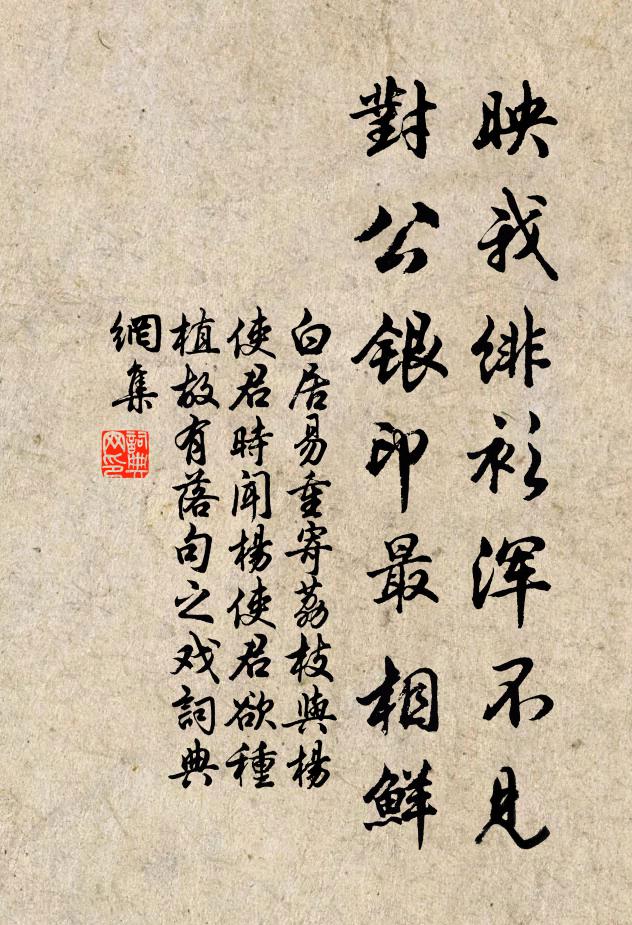 映我緋衫浑不見
對公銀印最相鮮
白居易重寄荔枝與楊
使君時聞楊使君欲種
植故有落句之戏詞典
網集
詞典
网印